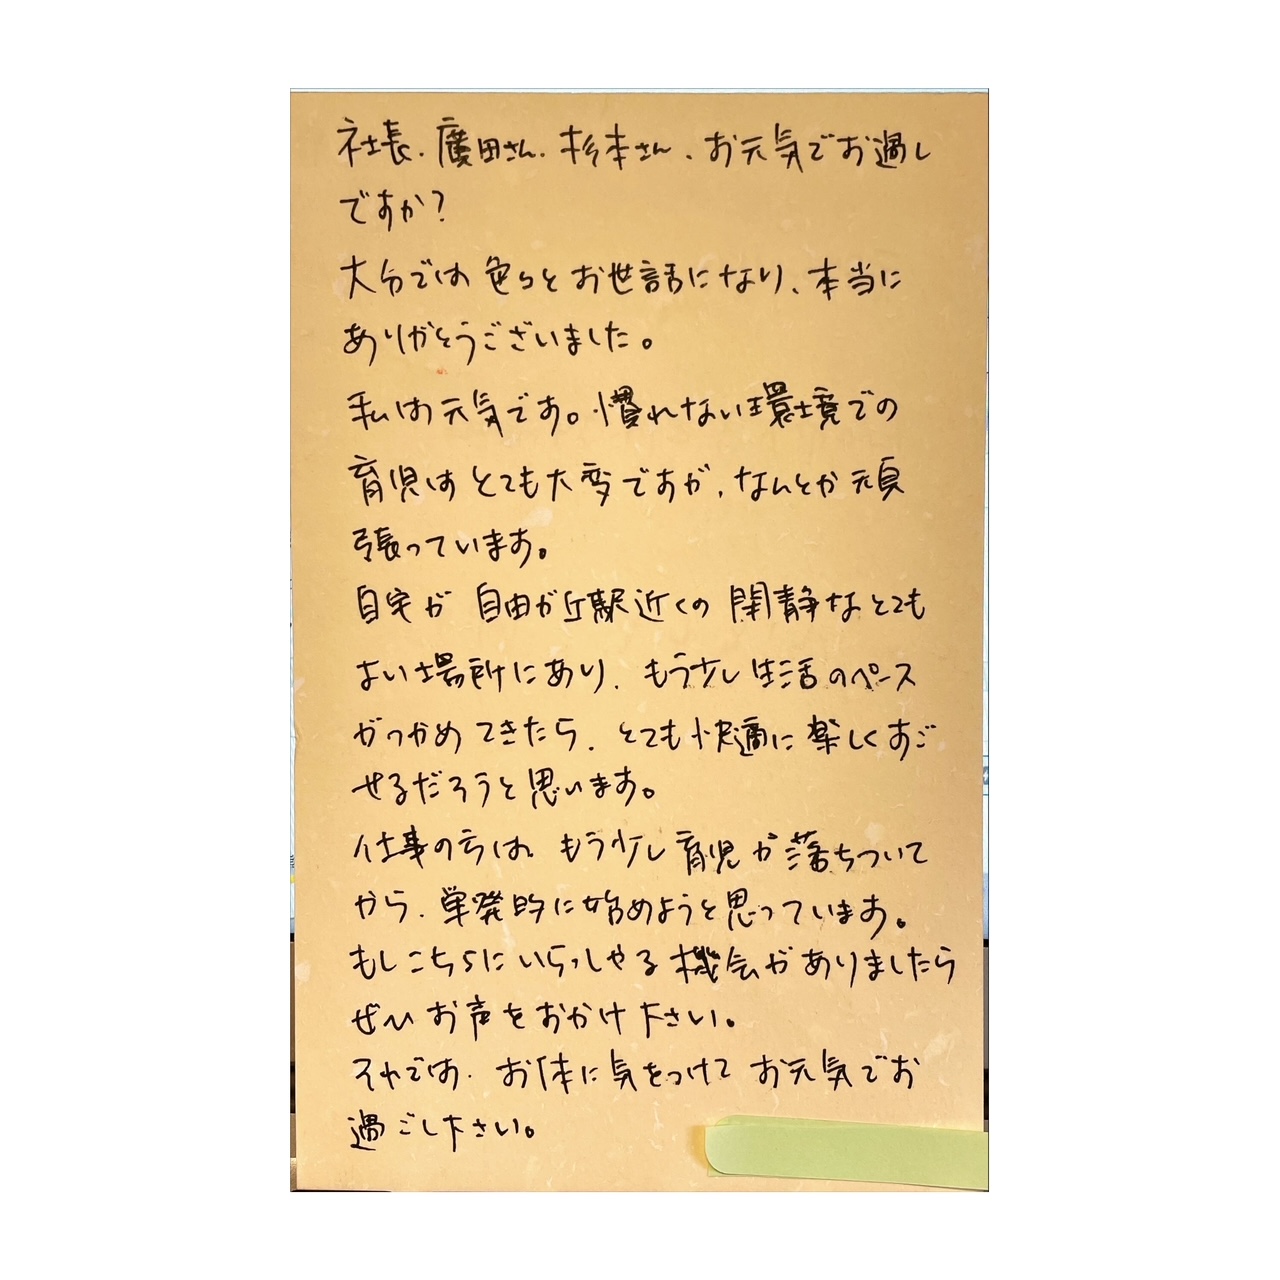 社長、廣田さん、杉本さん、お元気でお過し
ですか？
大分では色々とお世話になり、本当に
ありがとうございました。
私は元気です。慣れない環境での
育児はとても大変ですが、なんとか頑
張っています。
自宅が自由が丘駅近くの閑静なとても
よい場所にあり、もう少し生活のペース
がつかめてきたら、とても快適に楽しくすご
せるだろうと思います。
仕事の方は、もう少し育児が落ちついて
から、単発的に始めようと思っています。
もしこちらにいらっしゃる機会がありましたら
ぜひお声をおかけ下さい。
それでは、お体に気をつけてお元気でお
過ごし下さい。